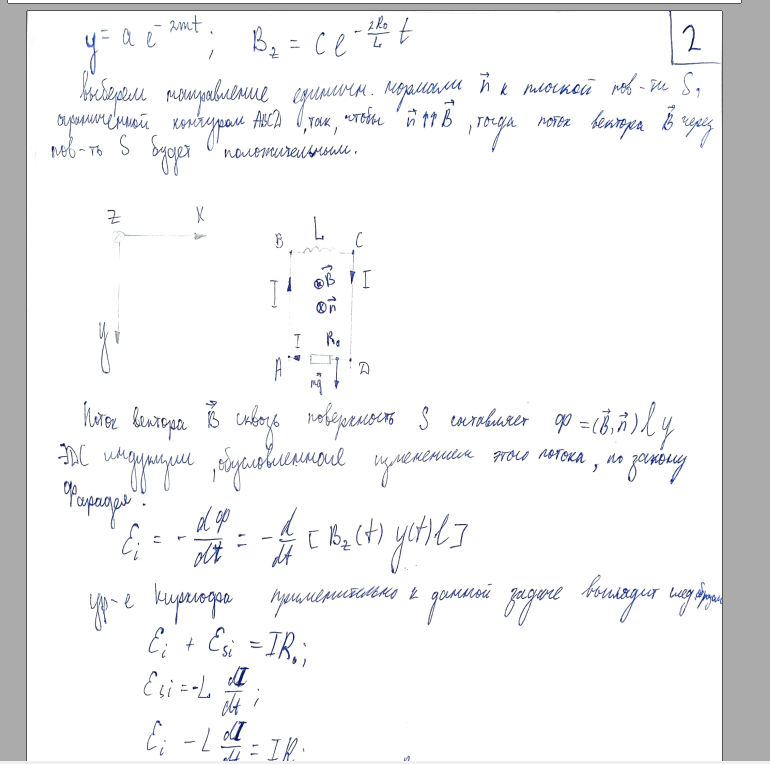 y = a e^{-2mt}; B_z = C e^{-\frac{2R_0}{L} t}
2
выберем направление единичн. нормали n⃗ к плоской пов-ти S,
ограниченной контуром ABCD, так, чтобы n⃗ ↑↑ B⃗, тогда поток вектора B⃗ через
пов-ть S будет положительным.
Z X
y
B L C
I ⊗B⃗ I
⊗n⃗
I R₀
A D
mg⃗
Поток вектора B⃗ сквозь поверхность S составляет Φ = (B⃗, n⃗) l y
ЭДС индукции, обусловленная изменением этого потока, по закону
Фарадея:
ℰ_i = - \frac{dΦ}{dt} = - \frac{d}{dt} [B_z(t) y(t) l]
ур-е Кирхгофа применительно к данной задаче выглядит след образом
ℰ_i + ℰ_{si} = IR₀;
ℰ_{si} = -L \frac{dI}{dt};
ℰ_i - L \frac{dI}{dt} = IR